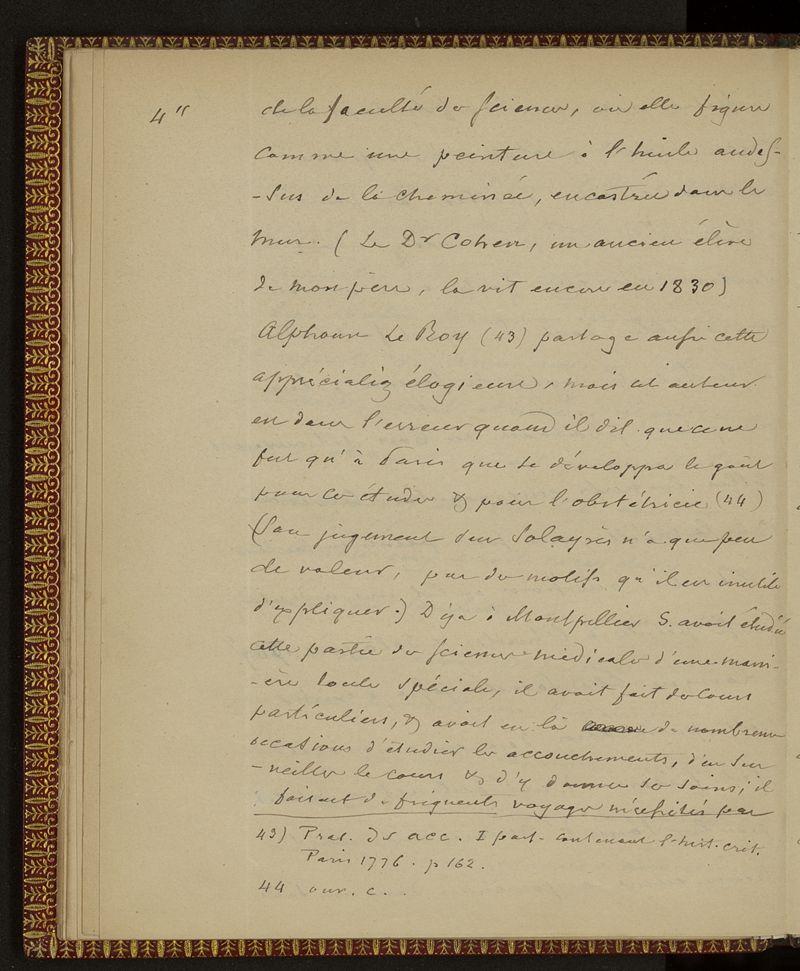 4"
de la faculté de science, où elle figure
comme une peinture à l'huile audes-
-sus de la cheminée, encastrée dans le
mur. (Le Dr Cohen, un ancien élève
de mon père, la vit encore en 1830)
Alphonse Le Roy (43) partage aussi cette
appréciation élogieuse, mais cet auteur
est dans l'erreur quand il dit que ce ne
fut qu'à Paris que se développa le goût
pour ces études & pour l'obstétricie (44)
(Son jugement sur Solayrès n'a que peu
de valeur, par des motifs qu'il est inutile
d'expliquer.) Déja à Montpellier S. avait étudié
cette partie des sciences médicales d'une mani-
-ère toute spéciale, il avait fait des cours
particuliers, & avait eu là de nombreuses
occasions d'étudier les accouchements, d'en sur-
-veiller le cours & d'y donner ses soins; il
faisait de fréquents voyages nécessités par
43) Prat. des acc. I part. contenant l'hist. crit.
Paris 1776. p 162.
44 ouv. c.